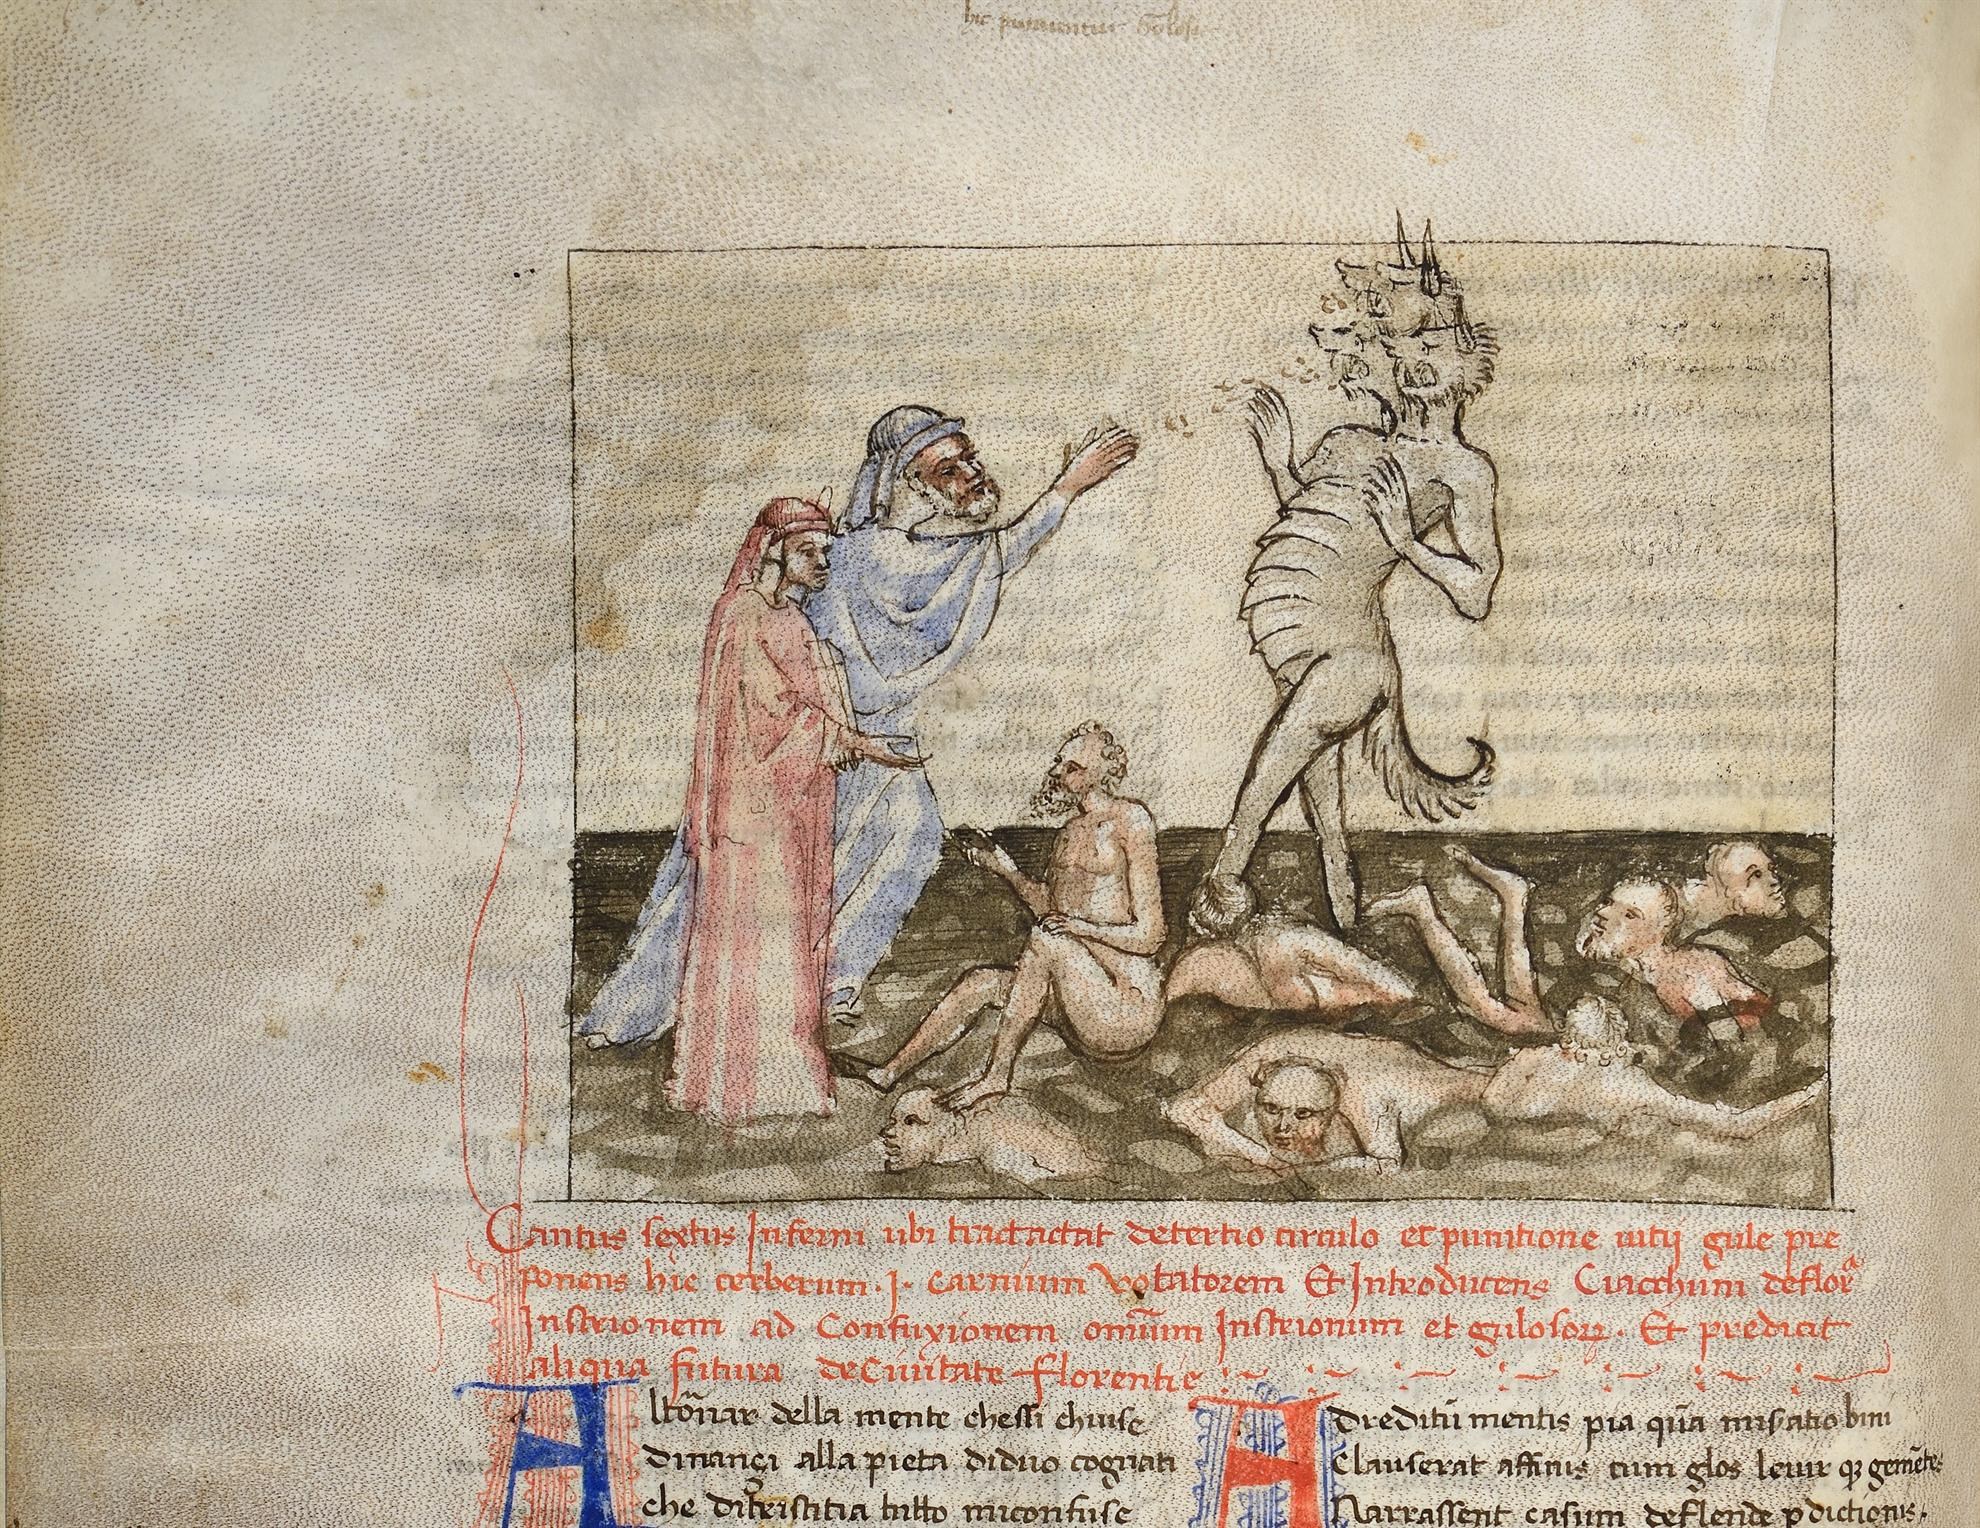 hic puniuntur Golosi
Cantus sextus Inferni ubi tractactat de tertio circulo et punitione uitij gule pre
ponens hic cerberum .j. carnium votatorem Et Introducens Ciacchum de flor
Instrionem ad Confuxionem omium Instrionum et gulosorꝝ. Et predicit
aliqua futura de Ciuitate florentie
Al tornar della mente chessi chiuse
dinançi alla pieta di duo cognati
che di tristitia tutto mi confuse
Ad reditū mentis pia quā miseratio bini
Clauserat affinis cum glos leuir qꝫ gemētes
Narrassent casum deflende pdictionis.